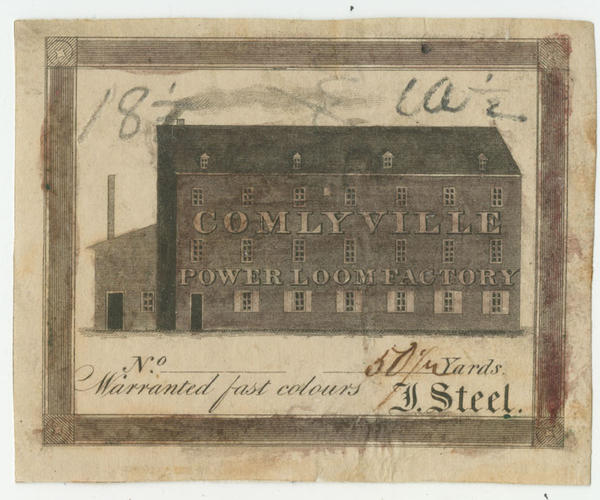 18½
COMLYVILLE
POWER LOOM FACTORY
No. 50½ Yards.
Warranted fast colours
J. Steel.